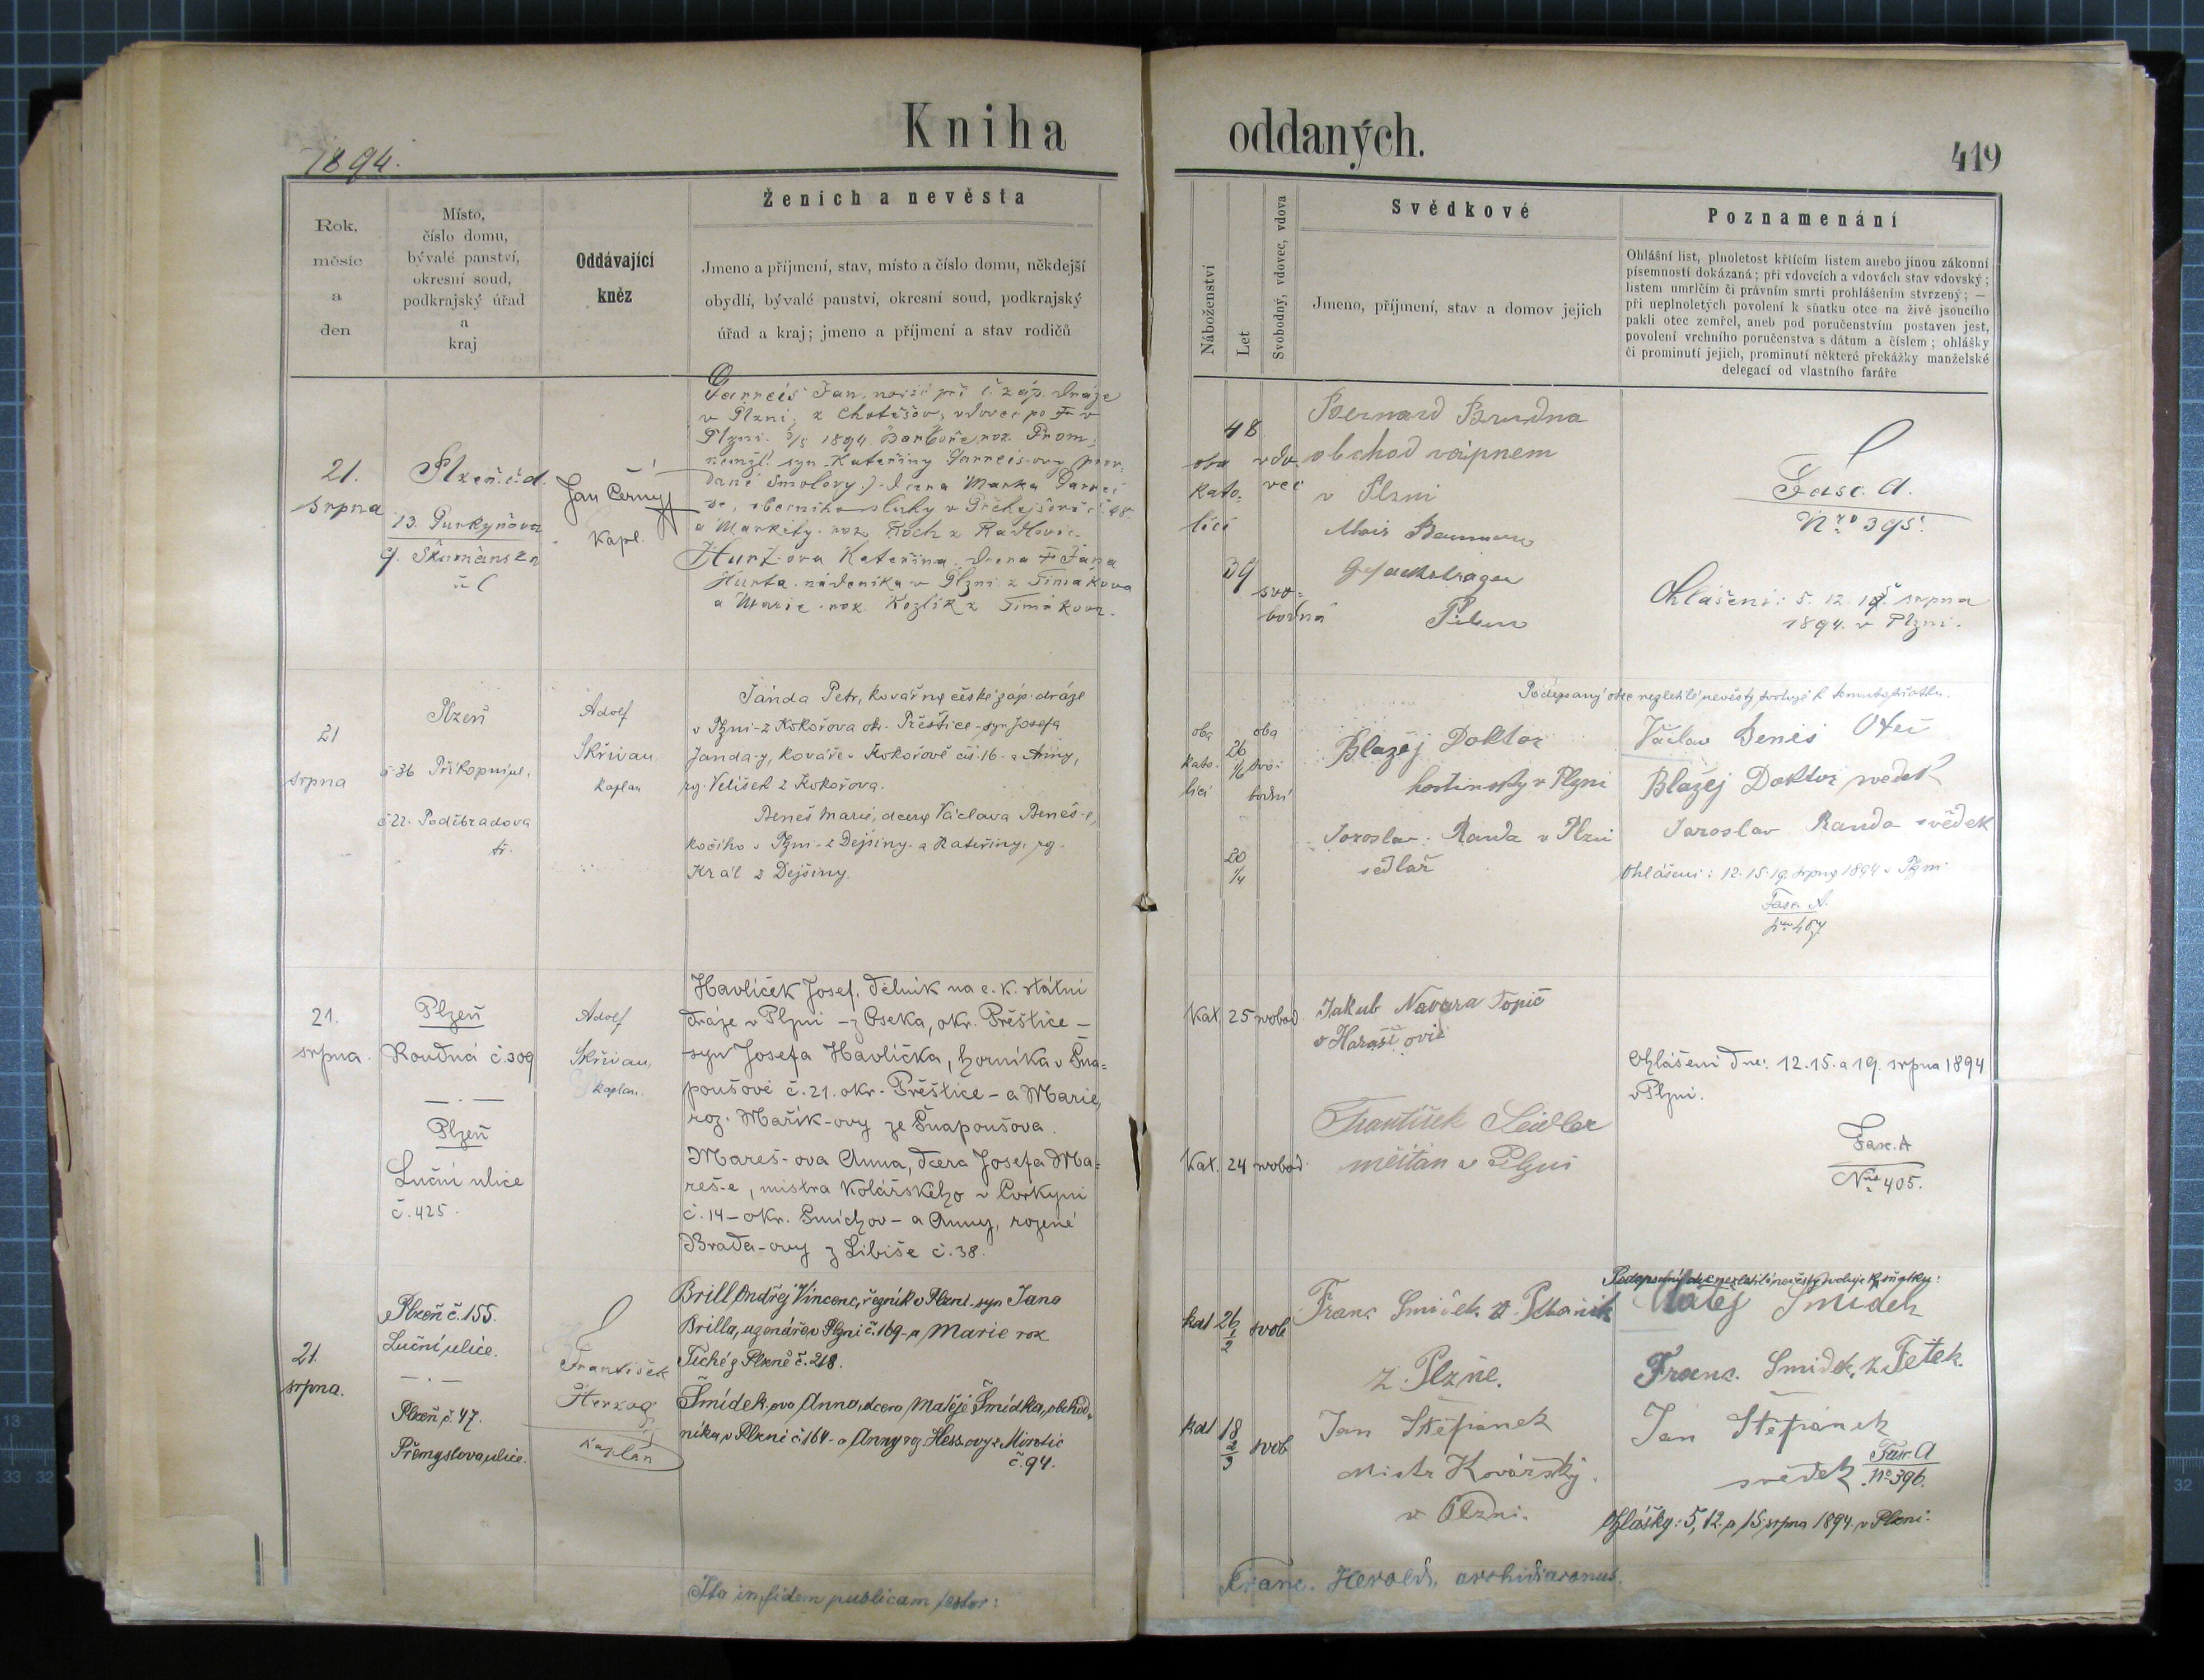 Kniha oddaných.
1894.
419
Rok,
měsíc
a
den
Místo,
číslo domu,
bývalé panství,
okresní soud,
podkrajský úřad
a
kraj
Oddávající
kněz
Ženich a nevěsta
Jmeno a příjmení, stav, místo a číslo domu, někdejší
obydlí, bývalé panství, okresní soud, podkrajský
úřad a kraj; jmeno a příjmení a stav rodičů
Náboženství
Let
Svobodný, vdovec, vdova
Svědkové
Jmeno, příjmení, stav a domov jejich
Poznamenání
Ohlášní list, plnoletost křticím listem anebo jinou zákonní
písemností dokázaná; při vdovcích a vdovách stav vdovský;
listem umrlčím či právním smrti prohlášením stvrzený; —
při neplnoletých povolení k sňatku otce na živě jsoucího
pakli otec zemřel, aneb pod poručenstvím postaven jest,
povolení vrchního poručenstva s dátum a číslem; ohlášky
či prominutí jejich, prominutí některé překážky manželské
delegací od vlastního faráře
21.
srpna
Plzeň
13. Purkyňova
9.
Jan Černý
kapl.
Jan, při č. záp. dráze
v Plzni, z Chotěšov, vdovec po
Plzni 1894. Barboře roz.
syn Kateřiny
dcera
obecního sluhy v
a Markéty roz. Koch z
Hurt-ova Kateřina dcera † Jana
Hurta nádeníka v Plzni z Timákova
a Marie roz. Kozlík z Timákova.
48
oba
kato-
líci
vdo-
vec
39
svo-
bodná
Bernard Brudna
obchod vápnem
v Plzni
Fasc. A.
Nro 395.
Ohlášení: 5. 12. srpna
1894. v Plzni.
21
srpna
Plzeň
č 36 Příkopní ul.
č 22. Poděbradova
tř.
Adolf
Skřivan,
kaplan
Janda Petr, kovář na české záp. dráze
v Plzni - z Kokořova okr. Přeštice - syn Josefa
Janda-y, kováře v Kokořově čís. 16 - a Anny,
rz. Velíšek z Kokořova.
Beneš Marie, dcera Václava Beneš-e,
kočího v Plzni - z Dejšiny - a Kateřiny, rz.
Král z Dejšiny.
oba
kato-
líci
26
1/6
oba
svo-
bodní
20
1/4
Blažej Doktor
hostinský v Plzni
Jaroslav Randa v Plzni
sedlař
Podepsaný otec nezletilé nevěsty svoluje k tomuto sňatku.
Václav Beneš Otec
Blažej Doktor svědek
Jaroslav Randa svědek
Ohlášeni: 12. 15. 19. srpna 1894 v Plzni
Fasc. A.
21.
srpna.
Plzeň
Roudná č. 309
— . —
Plzeň
Luční ulice
č. 425.
Adolf
Skřivan,
kaplan.
Havlíček Josef, dělník na c. k. státní
dráze v Plzni - z Oseka, okr. Přeštice -
syn Josefa Havlíčka, horníka v Šna-
poušově č. 21. okr. Přeštice - a Marie,
roz. Mařík-ovy ze Šnapoušova.
Mareš-ova Anna, dcera Josefa Ma-
reš-e, mistra kolářského v Cvrkyni
č. 14 - okr. Smíchov - a Anny, rozené
Brada-ovy z Libiše č. 38.
Kat. 25 svobod.
Kat. 24 svobod.
Jakub Navara Topič
František Seidler
měštan v Plzni
Ohlášeni dne: 12. 15. a 19. srpna 1894
v Plzni.
Fasc. A
Nro 405.
21.
srpna.
Plzeň č. 155.
Luční ulice.
— . —
Plzeň č. 47.
Přemyslova ulice.
František
Herzog
Kaplan
Brill Ondřej Vincenc, řezník v Plzni - syn Jana
Brilla, uzenáře v Plzni č. 169 - a Marie roz
Tiché z Plzně č. 218.
Šmídek-ova Anna, dcera Matěje Šmídka, obchod-
níka v Plzni č. 164 - a Anny rz. Hess-ovy z Mirotic
č. 94.
kat 26 1/2 svob
kat 18 2/3 svob
Franc Smidek
z Plzně.
Jan Štěpánek
Mistr Kovářský.
v Plzni.
Podepsaný otec nezletilé nevěsty svoluje k sňatku:
Matěj Smidek
Franc. Smidek,
Jan Štěpánek
svědek
Fasc. A
No 396.
Ohlášky: 5, 12. a 15 srpna 1894. v Plzni.
Ita in fidem publicam testor:
Franc. Herold, archidiaconus.